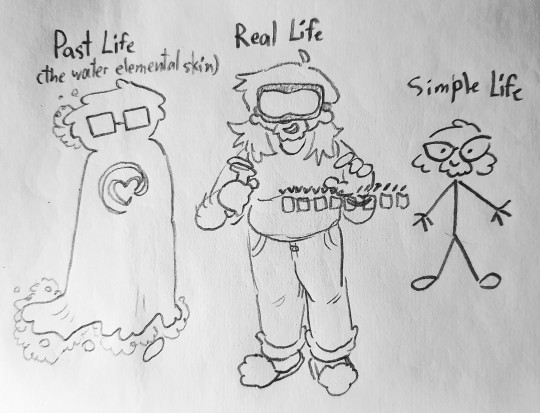 Past Life
(the water elemental skin)
Real Life
Simple Life